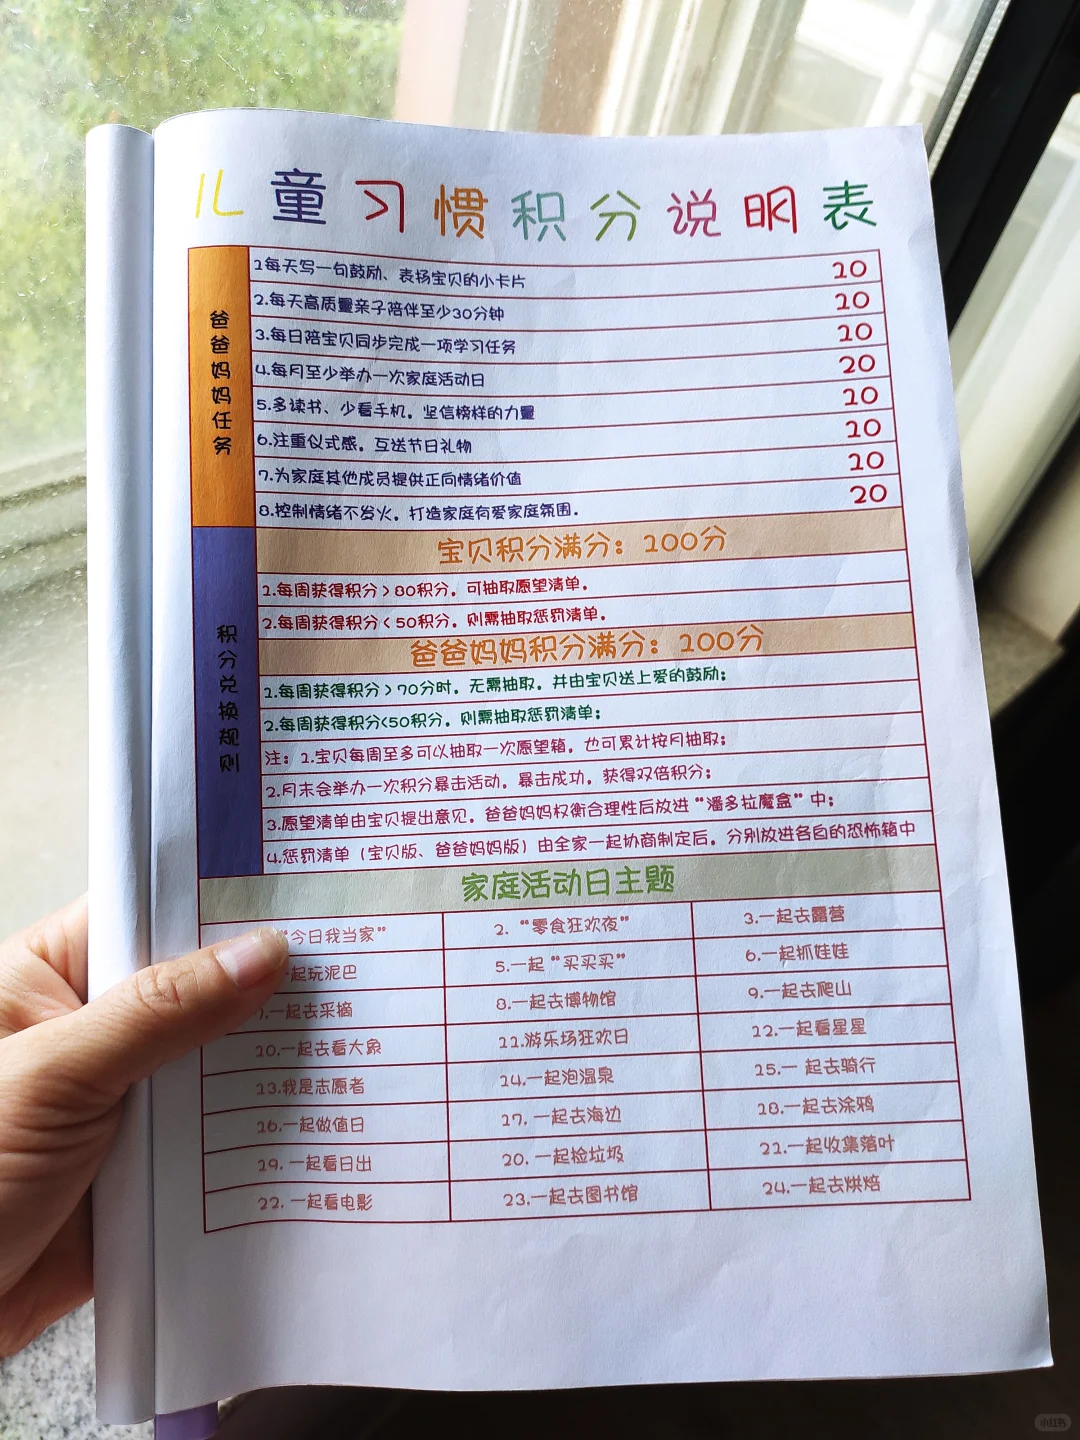 儿童习惯积分说明表
爸爸妈妈任务
1每天写一句鼓励、表扬宝贝的小卡片 10
2.每天高质量亲子陪伴至少30分钟 10
3.每日陪宝贝同步完成一项学习任务 10
4.每月至少举办一次家庭活动日 10
5.多读书、少看手机。坚信榜样的力量 10
6.注重仪式感。互送节日礼物 10
7.为家庭其他成员提供正向情绪价值 10
8.控制情绪不发火。打造家庭有爱家庭氛围。 10
积分兑换规则
宝贝积分满分：100分
1.每周获得积分>80积分。可抽取愿望清单。
2.每周获得积分<50积分。则需抽取惩罚清单。
爸爸妈妈积分满分：100分
1.每周获得积分>70分时。无需抽取。并由宝贝送上爱的鼓励；
2.每周获得积分<50积分。则需抽取惩罚清单；
注：1.宝贝每周至多可以抽取一次愿望箱。也可累计按月抽取；
2.月末会举办一次积分暴击活动。暴击成功。获得双倍积分；
3.愿望清单由宝贝提出意见。爸爸妈妈权衡合理性后放进“潘多拉魔盒”中；
4.惩罚清单（宝贝版、爸爸妈妈版）由全家一起协商制定后。分别放进各自的恐怖箱中
家庭活动日主题
“今日我当家” 2. “零食狂欢夜” 3.一起去露营
一起玩泥巴 5.一起“买买买” 6.一起抓娃娃
7.一起去采摘 8.一起去博物馆 9.一起去爬山
10.一起去看大象 11.游乐场狂欢日 12.一起看星星
13.我是志愿者 14.一起泡温泉 15.一 起去骑行
16.一起做值日 17. 一起去海边 18.一起去涂鸦
19. 一起看日出 20. 一起捡垃圾 21.一起收集落叶
22. 一起看电影 23.一起去图书馆 24.一起去烘焙
小红书